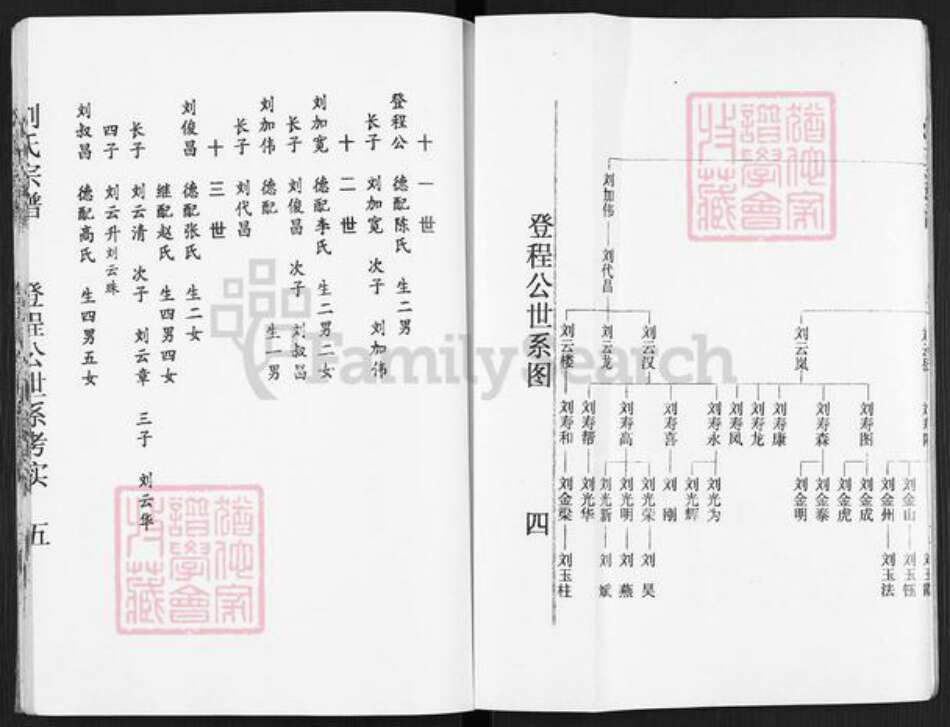 登程公世系图
四
刘加伟
刘代昌
刘云汉
刘云龙
刘云楼
刘云岚
刘寿图
刘寿森
刘寿康
刘寿龙
刘寿凤
刘寿永
刘寿喜
刘寿高
刘寿帮
刘寿和
刘金山
刘金州
刘金成
刘金虎
刘金泰
刘金明
刘光为
刘光辉
刘 刚
刘光荣
刘光明
刘光新
刘光华
刘金梁
刘玉钰
刘玉法
刘 昊
刘 燕
刘 斌
刘玉柱
十一世
登程公 德配陈氏 生二男
长子 刘加宽 次子 刘加伟
十二世
刘加宽 德配李氏 生二男二女
长子 刘俊昌 次子 刘叔昌
刘加伟 德配 生一男
长子 刘代昌
十三世
刘俊昌 德配张氏 生二女
继配赵氏 生四男四女
长子 刘云清 次子 刘云章 三子 刘云华
四子 刘云升 刘云珠
刘叔昌 德配高氏 生四男五女
刘氏宗谱 登程公世系考实 五
猶他家譜學會收藏
猶他家譜學會收藏
FamilySearch